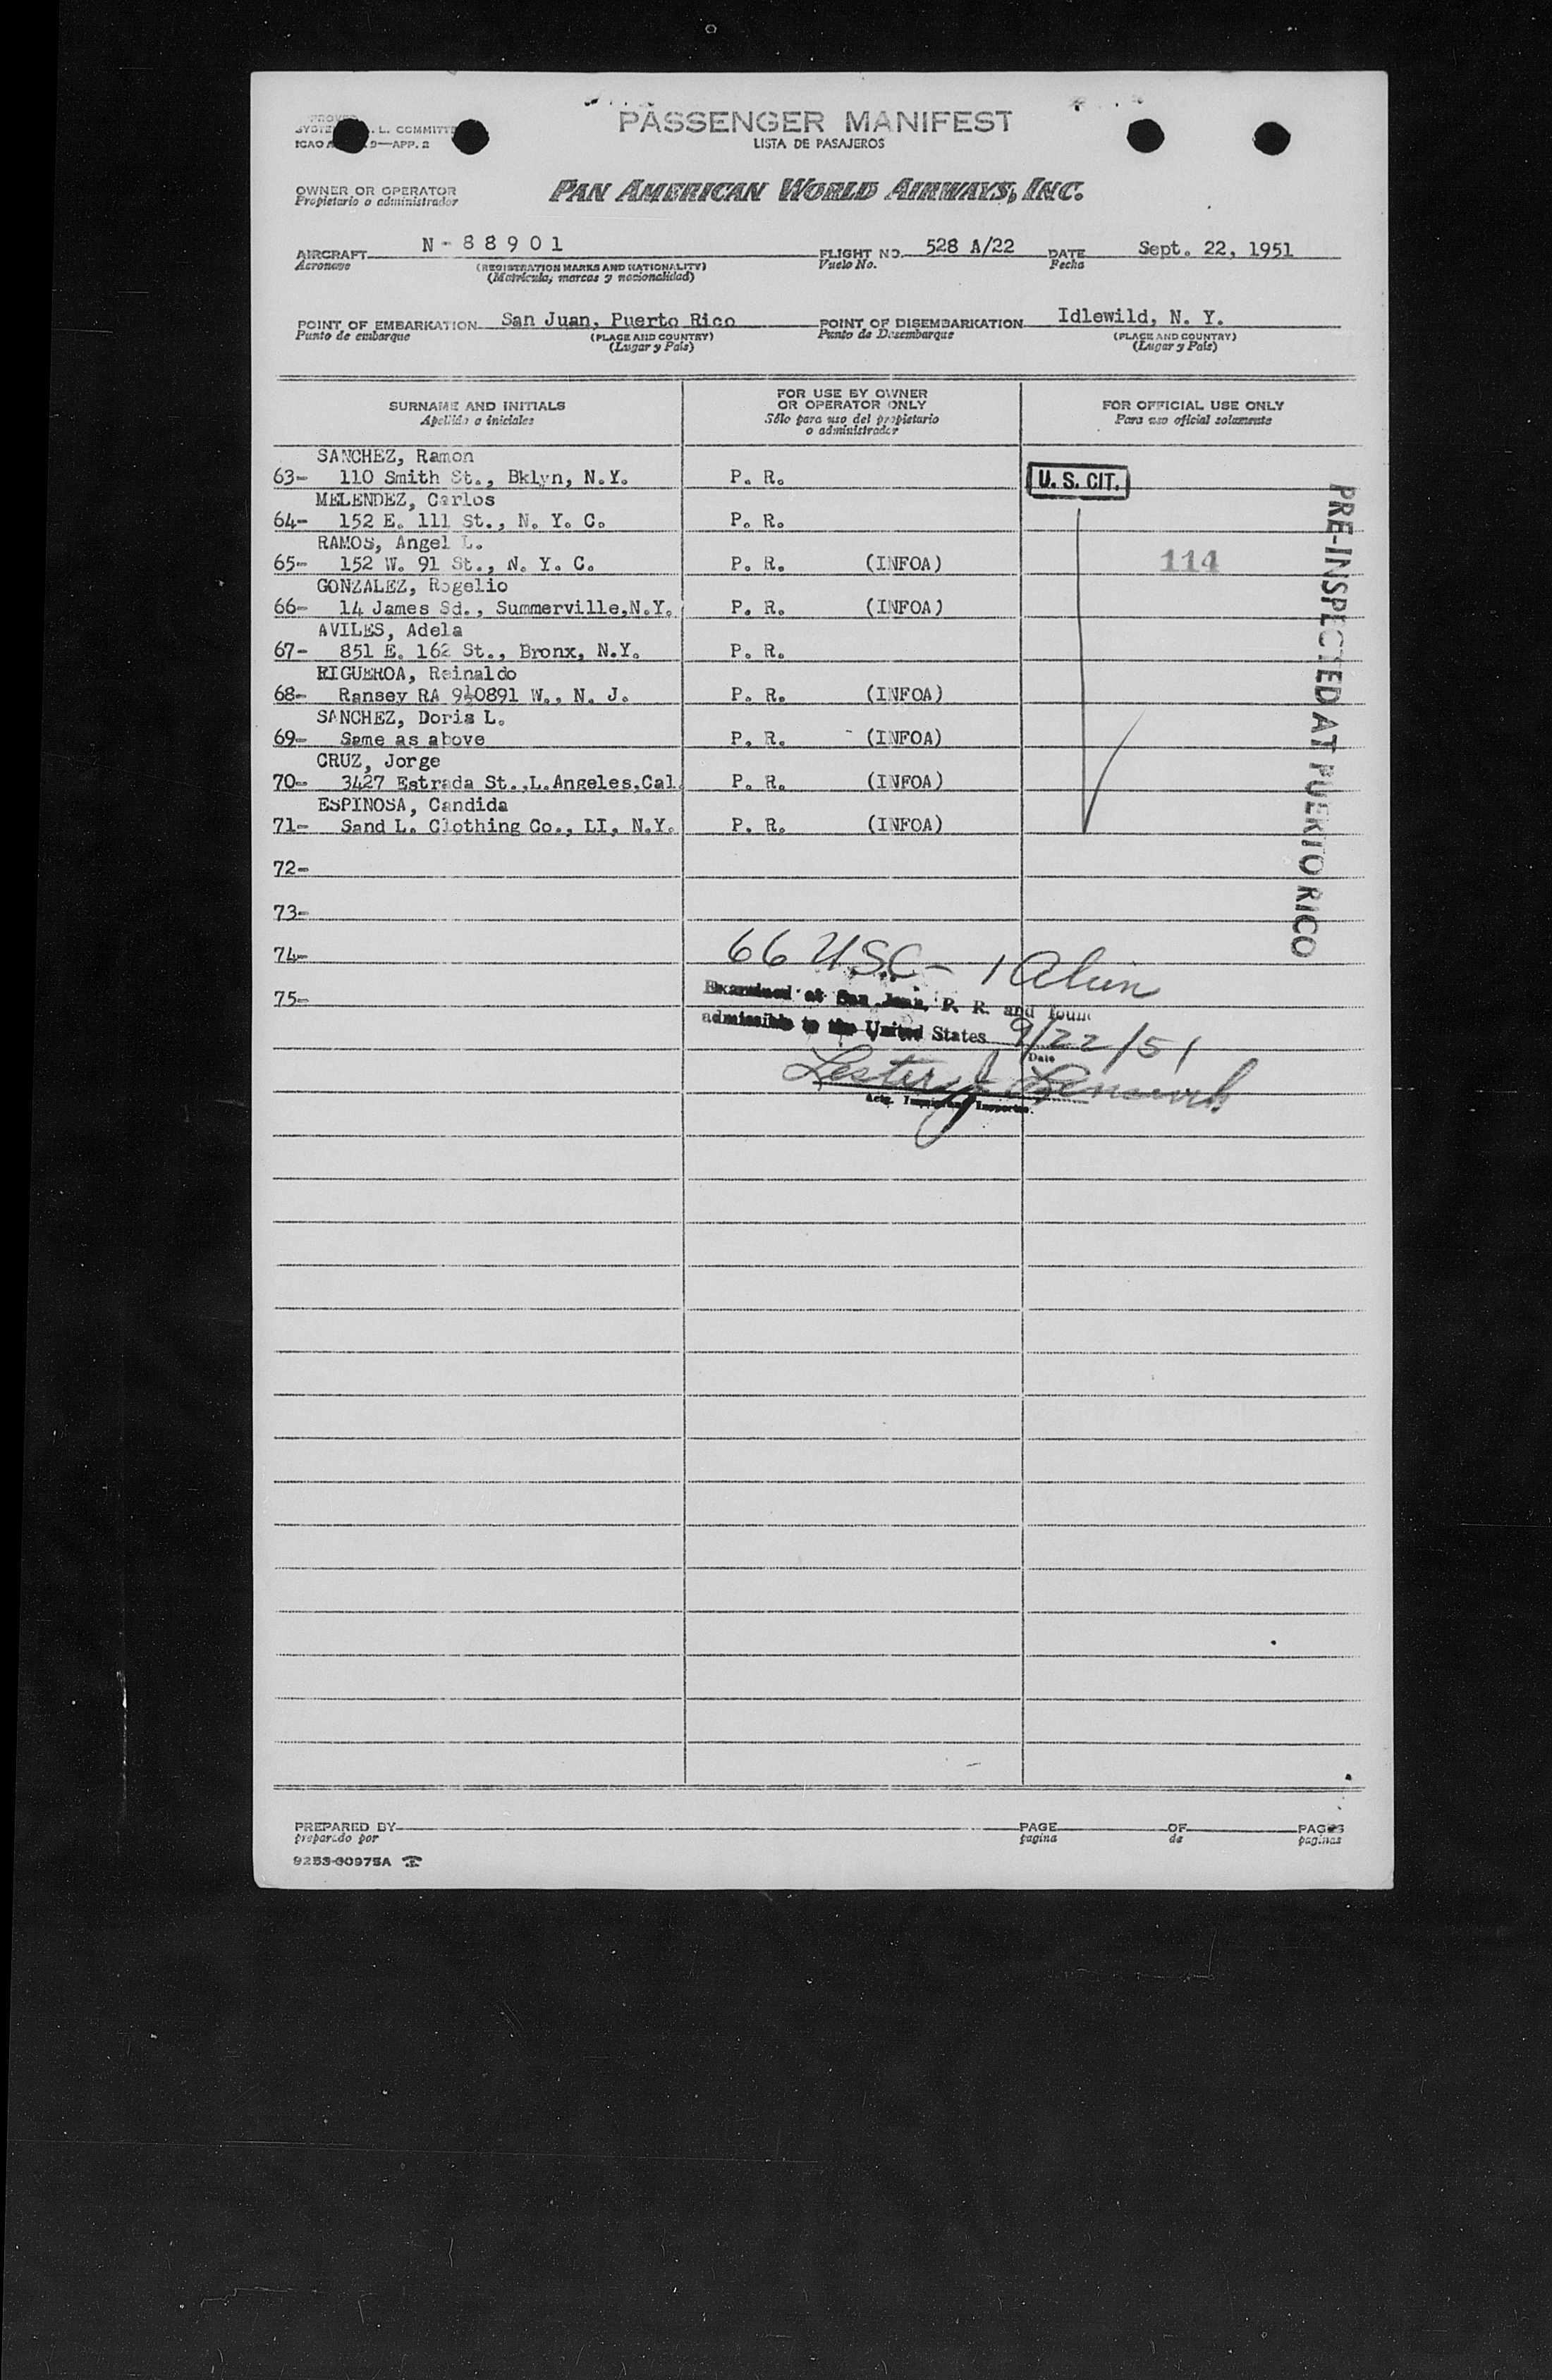 PASSENGER MANIFEST
LISTA DE PASAJEROS
L. COMMITTE
ICAO 9—APP. 2
OWNER OR OPERATOR
Propietario o administrador
PAN AMERICAN WORLD AIRWAYS, INC.
AIRCRAFT N-88901 FLIGHT NO. 528 A/22 DATE Sept. 22, 1951
Aeronave (REGISTRATION MARKS AND NATIONALITY) Vuelo No. Fecha
(Matrícula, marcas y nacionalidad)
POINT OF EMBARKATION San Juan, Puerto Rico POINT OF DISEMBARKATION Idlewild, N. Y.
Punto de embarque (PLACE AND COUNTRY) Punto de Desembarque (PLACE AND COUNTRY)
(Lugar y País) (Lugar y País)
SURNAME AND INITIALS FOR USE BY OWNER OR OPERATOR ONLY FOR OFFICIAL USE ONLY
Apellido o iniciales Sólo para uso del propietario o administrador Para uso oficial solamente
SANCHEZ, Ramon
63- 110 Smith St., Bklyn, N.Y. P. R. U. S. CIT.
MELENDEZ, Carlos
64- 152 E. 111 St., N. Y. C. P. R.
RAMOS, Angel L.
65- 152 W. 91 St., N. Y. C. P. R. (INFOA) 114
GONZALEZ, Rogelio
66- 14 James Sd., Summerville,N.Y. P. R. (INFOA)
AVILES, Adela
67- 851 E. 162 St., Bronx, N.Y. P. R.
RIGUEROA, Reinaldo
68- Ransey RA 9-0891 W., N. J. P. R. (INFOA)
SANCHEZ, Doris L.
69- Same as above P. R. (INFOA)
CRUZ, Jorge
70- 3427 Estrada St.,L.Angeles,Cal. P. R. (INFOA)
ESPINOSA, Candida
71- Sand L. Clothing Co., LI, N.Y. P. R. (INFOA)
PRE-INSPECTED AT PUERTO RICO
72-
73-
74- 66 USC - 1 Alien
75-
Examined at San Juan, P. R. and found
admissible to the United States 9/22/51
Date
Lester J.
Actg. Immigrant Inspector.
PREPARED BY PAGE OF PAGES
preparado por pagina de paginas
9253-60975A